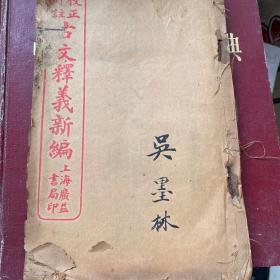 校正
詳註
古文釋義新編
上海廣益
書局印
吳墨林
典